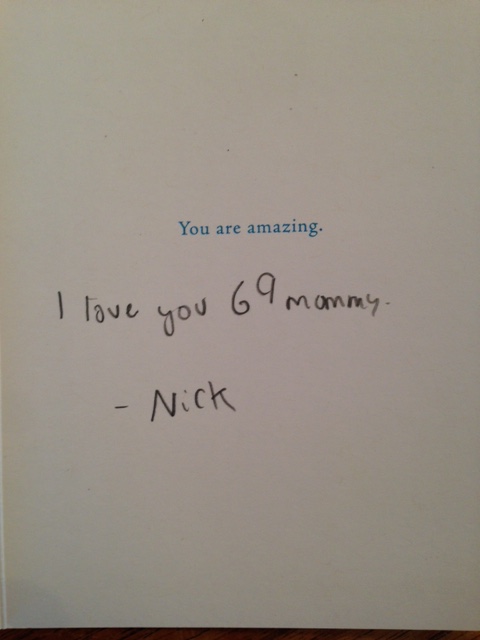 You are amazing.
I love you 69 mommy.
- Nick